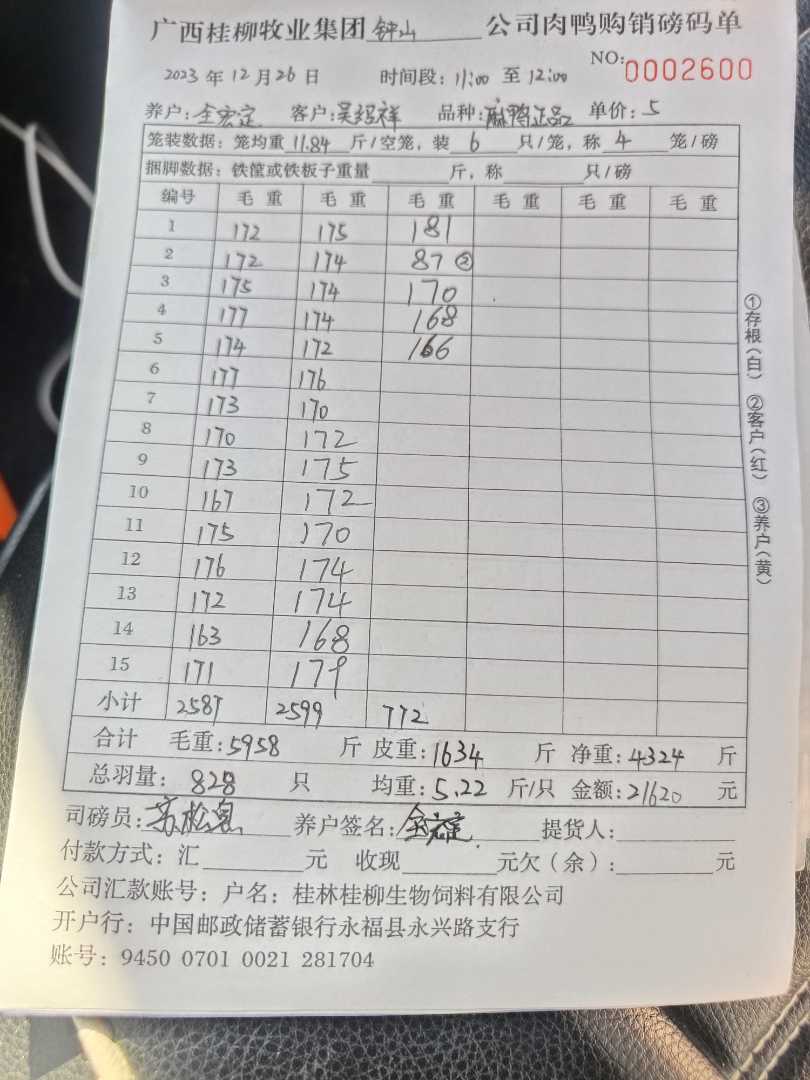 广西桂柳牧业集团 钟山 公司肉鸭购销磅码单
NO: 0002600
2023 年 12 月 26 日 时间段: 11:00 至 12:00
养户: 全宏定 客户: 吴绍祥 品种: 麻鸭正品 单价: 5
笼装数据: 笼均重 11.84 斤/空笼, 装 6 只/笼, 称 4 笼/磅
捆脚数据: 铁筐或铁板子重量 斤, 称 只/磅
编号 毛重 毛重 毛重 毛重 毛重 毛重
1 172 175 181
2 172 174 87 ②
3 175 174 170
4 177 174 168
5 174 172 166
6 177 176
7 173 170
8 170 172
9 173 175
10 167 172
11 175 170
12 176 174
13 172 174
14 163 168
15 171 179
小计 2587 2599 772
合计 毛重: 5958 斤 皮重: 1634 斤 净重: 4324 斤
总羽量: 828 只 均重: 5.22 斤/只 金额: 21620 元
司磅员: 养户签名: 提货人:
付款方式: 汇 元 收现 元欠(余): 元
公司汇款账号: 户名: 桂林桂柳生物饲料有限公司
开户行: 中国邮政储蓄银行永福县永兴路支行
账号: 9450 0701 0021 281704
①存根(白) ②客户(红) ③养户(黄)